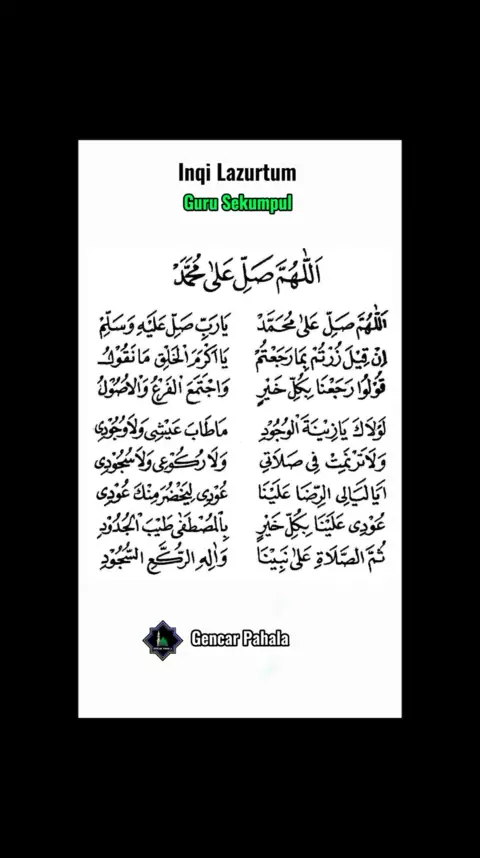 Inqi Lazurtum
Guru Sekumpul
اَللّٰهُمَّ صَلِّ عَلٰى مُحَمَّدْ
اَللّٰهُمَّ صَلِّ عَلٰى مُحَمَّدْ يَارَبِّ صَلِّ عَلَيْهِ وَسَلِّمْ
اِنْ قِيْلَ زُرْتُمْ بِمَارَجَعْتُمْ يَااَكْرَمَ الْخَلْقِ مَانَقُوْلُ
قُوْلُوا رَجَعْنَا بِكُلِّ خَيْرٍ وَاجْتَمَعَ الْفَرْعُ وَالْاُصُوْلُ
لَوْلَاكَ يَازِيْنَةَ الْوُجُوْدِ مَاطَابَ عَيْشِى وَلَاوُجُوْدِى
وَلَاتَرَنَّمْتُ فِى صَلَاتِى وَلَارُكُوْعِى وَلَاسُجُوْدِى
اَيَالَيَالِى الرِّضَا عَلَيْنَا عُوْدِى لِيَخْضَرَّ مِنْكَ عُوْدِى
عُوْدِى عَلَيْنَا بِكُلِّ خَيْرٍ بِالْمُصْطَفٰى طَيِّبِ الْجُدُوْدِ
ثُمَّ الصَّلَاةُ عَلٰى نَبِيِّنَا وَاٰلِهِ الرُّكَّعِ السُّجُوْدِ
Gencar Pahala